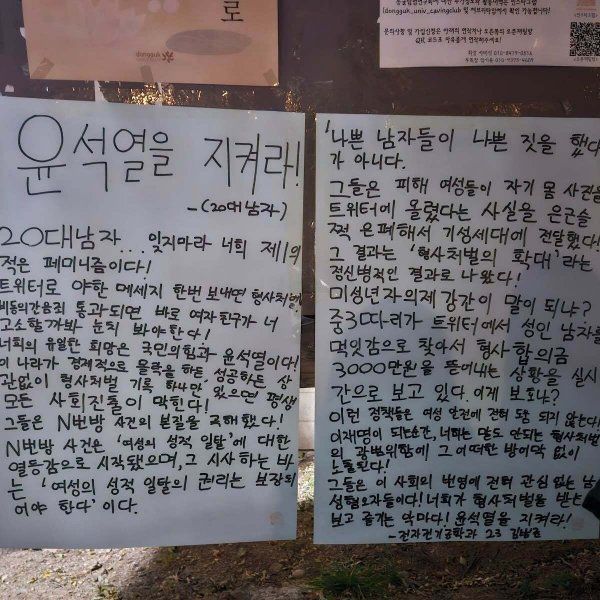 로
dongguk
윤석열을 지켜라!
-(20대남자)
20대남자... 잊지마라 너희 제1의
적은 페미니즘이다!
트위터로 야한 메세지 한번 보내면 형사처벌!
비동의간음죄 통과되면 바로 여자친구가 너
고소할까봐 눈치 봐야한다!
너희의 유일한 희망은 국민의힘과 윤석열이다!
이 나라가 경제적으로 몰락을 하든 성공하든 상
관없이 형사처벌 기록 하나만 있으면 평생
모든 사회진출이 막힌다!
그들은 N번방 사건의 본질을 곡해했다!
N번방 사건은 '여성의 성적 일탈'에 대한
열등감으로 시작됐으며, 그 시사하는 바
는 '여성의 성적 일탈의 권리는 보장되
어야 한다'이다.
(dongguk_univ_cavingclub) 및 에브리타임에서 확인 가능합니다!
문의사항 및 가입신청은 아래의 연락처나 오픈톡의 오픈채팅방
QR 코드로 자유롭게 연락주세요!
'나쁜 남자들이 나쁜 짓을 했다'
가 아니다.
그들은 피해 여성들이 자기 몸 사진을
트위터에 올렸다는 사실을 은근슬
쩍 은폐해서 기성세대에 전달했다!
그 결과는 '형사처벌의 확대'라는
정신병적인 결과로 나왔다!
미성년자의제 강간이 말이 되냐?
중3따리가 트위터에서 성인 남자를
먹잇감으로 찾아서 형사합의금
3000만원을 뜯어내는 상황을 실시
간으로 보고 있다. 이게 보호냐?
이런 정책들은 여성 안전에 전혀 도움 되지 않는다!
이재명이 되는순간, 너희는 말도 안되는 형사처벌
의 광뽀위함에 그 어떠한 방어막 없이
노출된다!
그들은 이 사회의 번영에 전혀 관심 없는 남
성혐오자들이다! 너희가 형사처벌을 받는걸
보고 즐기는 악마다! 윤석열을 지켜라!
-전자전기공학과 23 김남근